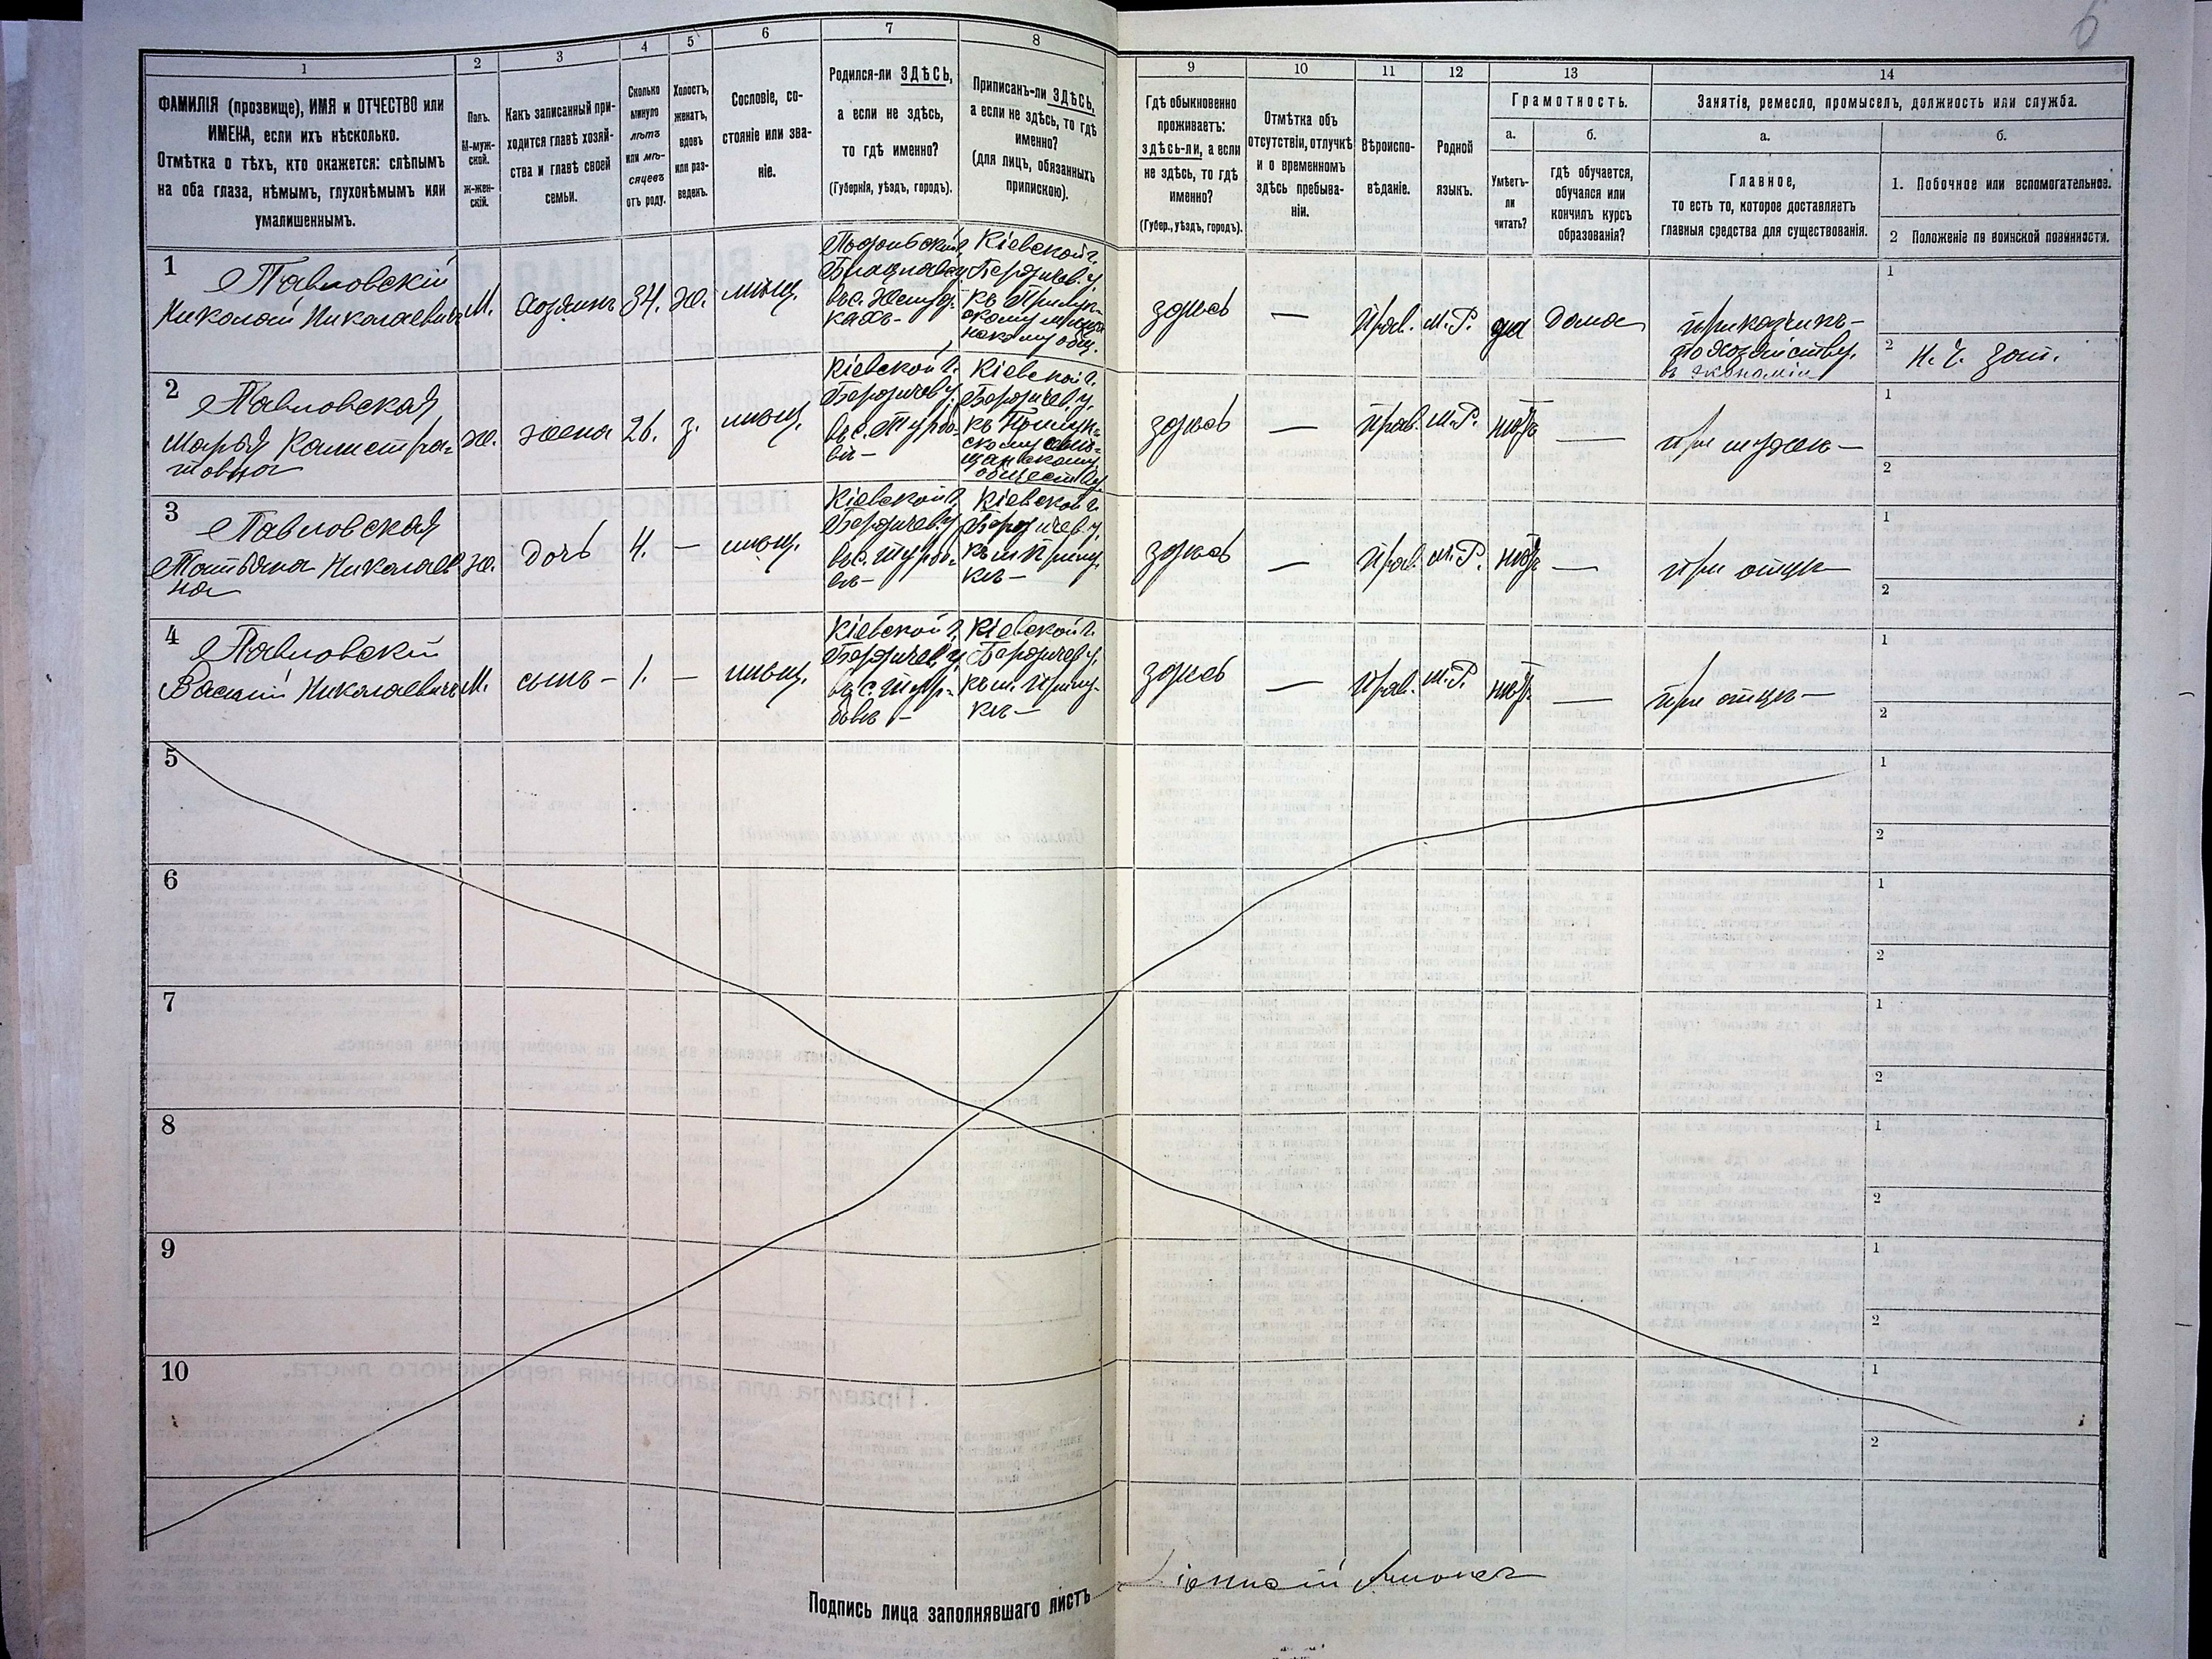 6
1
2
3
4
5
6
7
8
9
10
11
12
13
14
ФАМИЛІЯ (прозвище), ИМЯ и ОТЧЕСТВО или
ИМЕНА, если ихъ нѣсколько.
Отмѣтка о тѣхъ, кто окажется: слѣпымъ
на оба глаза, нѣмымъ, глухонѣмымъ или
умалишеннымъ.
Полъ.
М-муж-
ской.
ж-жен-
скій.
Какъ записанный при-
ходится главѣ хозяй-
ства и главѣ своей
семьи.
Сколько
минуло
лѣтъ
или мѣ-
сяцевъ
отъ роду.
Холостъ,
женатъ,
вдовъ
или раз-
веденъ.
Сословіе, со-
стояніе или зва-
ніе.
Родился-ли ЗДѢСЬ,
а если не здѣсь,
то гдѣ именно?
(Губернія, уѣздъ, городъ).
Приписанъ-ли ЗДѢСЬ,
а если не здѣсь, то гдѣ
именно?
(для лицъ, обязанныхъ
припискою).
Гдѣ обыкновенно
проживаетъ:
здѣсь-ли, а если
не здѣсь, то гдѣ
именно?
(Губер., уѣздъ, городъ).
Отмѣтка объ
отсутствіи, отлучкѣ
и о временномъ
здѣсь пребыва-
ніи.
Вѣроиспо-
вѣданіе.
Родной
языкъ.
Грамотность.
а.
б.
Умѣетъ-
ли
читать?
гдѣ обучается,
обучался или
кончилъ курсъ
образованія?
Занятіе, ремесло, промыселъ, должность или служба.
а.
б.
Главное,
то есть то, которое доставляетъ
главныя средства для существованія.
1. Побочное или вспомогательное.
2 Положеніе по воинской повинности.
1
Павловскій
Николай Николаевичъ
М.
хозяинъ
34.
ж.
мѣщ.
Подольской г.
въ с.
Кіевской г.
Бердичев. у.
къ Прилук-
скому
здѣсь
—
Прав.
М.Р.
да
дома
прикащикъ-
по хозяйству.
въ экономіи
1
2
2
Павловская
Марья Калистра-
товна
ж.
жена
26.
з.
мѣщ.
Кіевской г.
Бердичев. у.
въ с. Турбо-
вѣ —
Кіевской г.
Бердичев. у.
къ Прилук-
скому мѣ-
щанскому
обществу
здѣсь
—
Прав.
М.Р.
нѣтъ
—
при мужѣ —
1
2
3
Павловская
Татьяна Николаев
на
ж.
дочь
4.
—
мѣщ.
Кіевской г.
Бердичев. у.
въ с. Турбо-
вѣ —
Кіевской г.
Бердичев. у.
къ м. Прилу-
кѣ —
здѣсь
—
Прав.
М.Р.
нѣтъ
—
при отцѣ —
1
2
4
Павловскій
Василій Николаевичъ
М.
сынъ -
1.
—
мѣщ.
Кіевской г.
Бердичев. у.
въ с. Тур-
бовѣ —
Кіевской г.
Бердичев. у.
къ м. Прилу-
кѣ —
здѣсь
—
Прав.
М.Р.
нѣтъ
—
при отцѣ —
1
2
5
1
2
6
1
2
7
1
2
8
1
2
9
1
2
10
1
2
Подпись лица заполнявшаго листъ